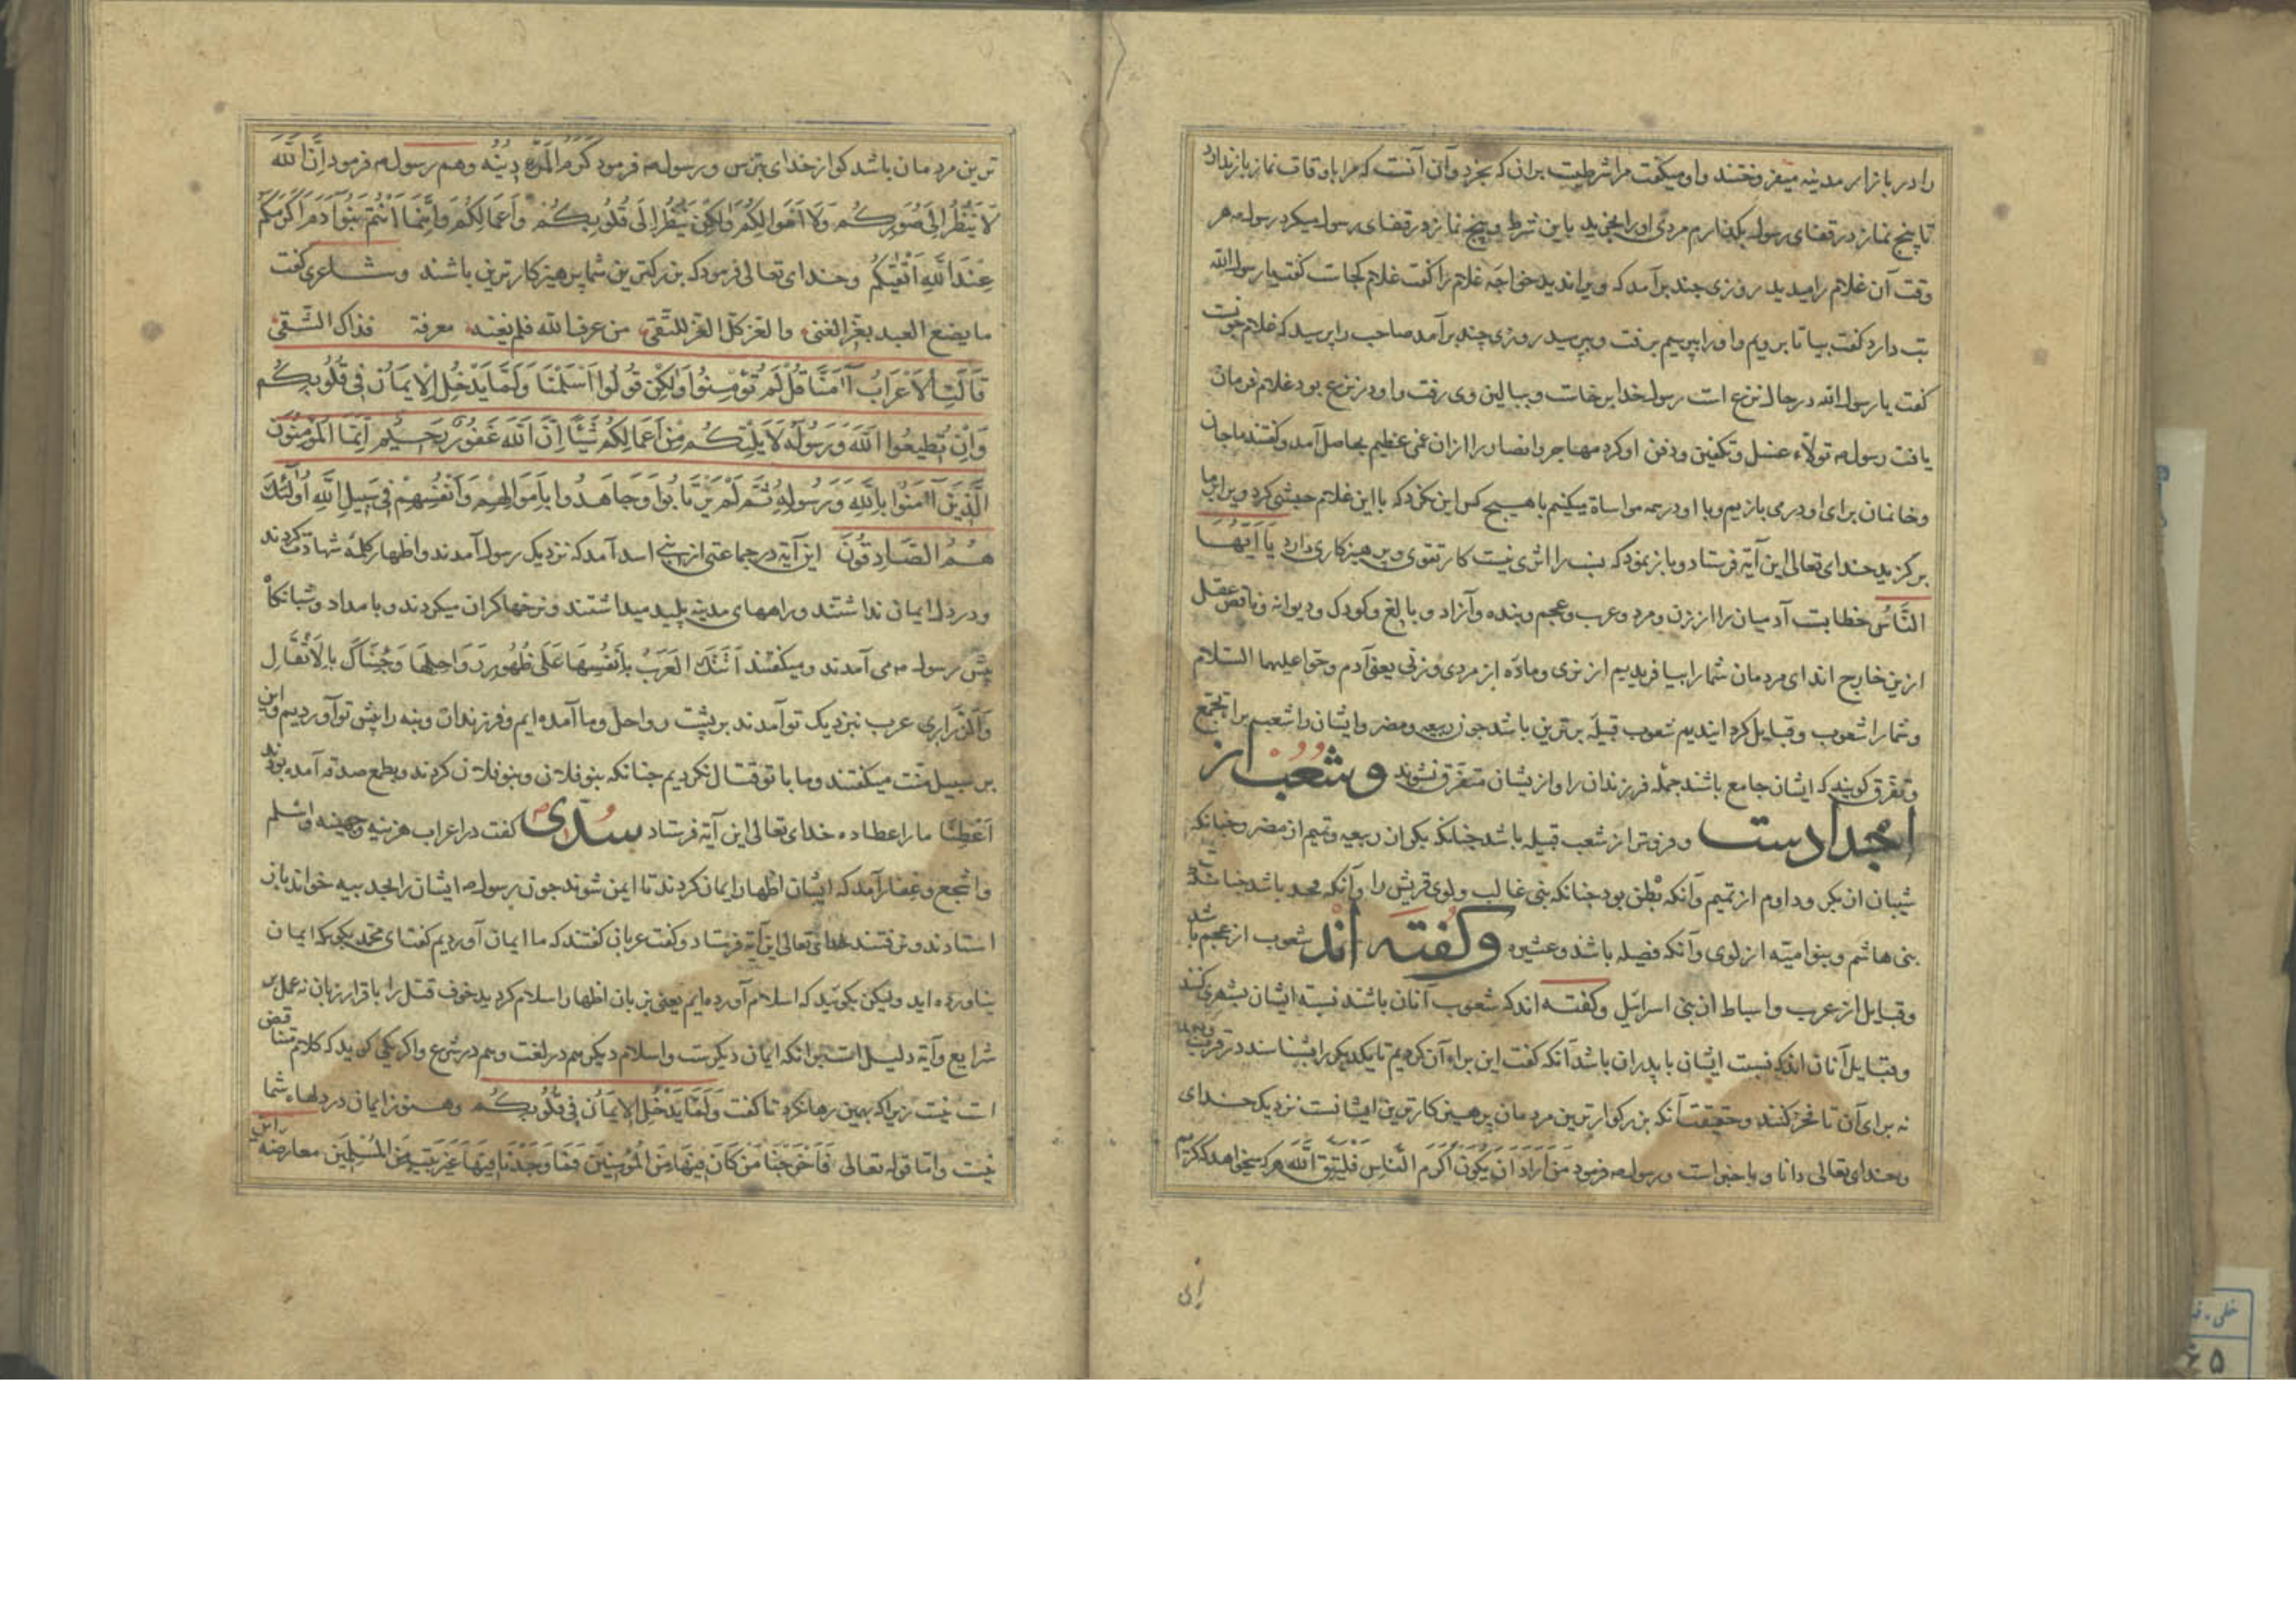 را در بازار مدینه میفروختند و او میکفت مرا شرطیست بران که بخرد و آن آنست که مرا باوقات نماز باز ندارد
تا پنج نماز در قفای رسول بکذارم مردی او را بخرید باین شرط و پنج نماز در قفای رسول میکرد رسول هر
وقت آن غلام را میدید روزی چند برآمد که ویرا ندید خواجه غلام را کفت غلام کجاست کفت یا رسول الله
تب دارد کفت بیا تا برویم و او را بپرسیم برفت و بپرسید روزی چند برآمد صاحب را پرسید که غلام چونست
کفت یا رسول الله در حال نزع است رسول خدا برخاست و ببالین وی رفت و او در نزع بود غلام فرمان
یافت رسول تولاء غسل و تکفین و دفن او کرد مهاجر و انصار را ازان غمی عظیم بحاصل آمد و کفتند ما جان
و خانمان برای او در می بازیم و با او در همه مواساة میکنیم با هیچ کس این نکرد که با این غلام حبشی کرد ویرا بر ما
برکزید خدای تعالی این آیه فرستاد و باز نمود که نسب را اثری نیست کار تقوی و پرهیزکاری دارد یَا اَیُّهَا
النَّاسُ خطابست آدمیان را از زن و مرد و عرب و عجم و بنده و آزاد و بالغ و کودک و دیوانه و ناقص عقل
ازین خارج اند ای مردمان شما را بیافریدیم از نری و ماده از مردی و زنی یعنی آدم و حوا علیهما السلام
و شما را شعوب و قبایل کردانیدیم شعوب قبیله برترین باشد جون ربیعه و مضر و ایشان را شعب برا تجمع
و تفرق کویند که ایشان جامع باشند جمله فرزندان را و از یشان متفرق شوند وشعب از
اجدادست و فروتر از شعب قبیله باشد جنانکه بکر از ربیعه و تمیم از مضر و جنانکه
شیبان از بکر و دارم از تمیم و آنکه بطن بود جنانکه بنی غالب و لوی قریش را و آنکه فخذ باشد جنانکه
بنی هاشم و بنو امیه از لوی و آنکه فصیله باشد و عشیره وکفته اند شعوب از عجم باشد
و قبایل از عرب و اسباط از بنی اسرائیل و کفته اند که شعوب آنان باشند نسبت ایشان بشهری کنند
و قبایل آنان اند که نسبت ایشان با پدران باشد آنکه کفت این براء آن کردیم تا یکدیکر را بشناسند در قرب
نه برای آن تا فخر کنند و حقیقت آنکه بزرکوارترین مردمان پرهیزکارترین ایشانست نزدیک خدای
و خدای تعالی دانا و با خبر است و رسول فرمود مَن اَرَادَ اَن یَکُونَ اَکرَم النَّاسِ فَلیَتَّقِ اللَّهَ هر که میخواهد که کرامی
ترین مردمان باشد کو از خدای بترس و رسول فرمود کَرَمُ المَرءِ دِینُه و هم رسول فرمود اِنَّ اللَّهَ
لَا یَنْظُرُ اِلَی صُوَرِکُم وَلَا اَموَالِکُم وَلٰکِن یَنْظُرُ اِلَی قُلُوبِکُم وَاَعمَالِکُم وَاِنَّمَا اَنْتُم بَنُو آدَمَ اَکرَمُکُم
عِنْدَ اللَّهِ اَتْقٰیکُم و خدای تعالی فرمود که بزرکترین شما پرهیزکارترین باشند و شاعری کفت
ما یصنع العبد بعز الغنی والعز کل العز للتقی من عرف الله فلم یغنه معرفة فذاک الشقی
قَالَتِ الْاَعْرَابُ آمَنَّا قُل لَم تُؤمِنُوا وَلٰکِن قُولُوا اَسْلَمْنَا وَلَمَّا یَدْخُلِ الْاِیمَانُ فِی قُلُوبِکُم
وَاِنْ تُطِیعُوا اللَّهَ وَرَسُولَهُ لَا یَلِتْکُم مِنْ اَعْمَالِکُم شَیْئًا اِنَّ اللَّهَ غَفُورٌ رَحِیمٌ اِنَّمَا الْمُؤْمِنُونَ
الَّذِینَ آمَنُوا بِاللَّهِ وَرَسُولِهِ ثُمَّ لَمْ یَرْتَابُوا وَجَاهَدُوا بِاَمْوَالِهِم وَاَنْفُسِهِمْ فِی سَبِیلِ اللَّهِ اُولٰئِکَ
هُمُ الصَّادِقُونَ این آیه در جماعتی از بنی اسد آمد که نزدیک رسول آمدند و اظهار کلمهٔ شهادت کردند
و در دل ایمان نداشتند و راههای مدینه پلید میداشتند و نرخها کران میکردند و بامداد و شبانکاه
پیش رسول می آمدند و میکفتند اَتَتْکَ العَرَبُ بِاَنفُسِهَا عَلَی ظُهُورِ رَوَاحِلِهَا وَجِئْنَاکَ بِالاَثْقَالِ
وَالذَّرَارِی عرب نزدیک تو آمدند بر پشت رواحل و ما آمده ایم و فرزندان و بنه را پیش تو آوردیم و این
بر سبیل منت میکفتند و ما با تو قتال نکردیم جنانکه بنو فلان و بنو فلان کردند و بطمع صدقه آمده بودند
اَعْطِنَا ما را عطا ده خدای تعالی این آیه فرستاد سدی کفت در اعراب مزینه و جهینه و اسلم
و اشجع و غفار آمد که ایشان اظهار ایمان کردند تا ایمن شوند جون رسول ایشان را بحدیبیه خواند باز
استادند و نرفتند خدای تعالی این آیه فرستاد و کفت عربان کفتند که ما ایمان آوردیم کفت ای محمد بکو که ایمان
نیاورده اید ولیکن بکوئید که اسلام آورده ایم یعنی بزبان اظهار اسلام کردید خوف قتل را باقرار زبان نه عمل بر
شرایع و آیه دلیل است برانکه ایمان دیکرست و اسلام دیکر هم در لغت و هم در شرع و اکر یکی کوید که کلام متناقض
است نیست زیرا که بهمین رها نکرد تا کفت وَلَمَّا یَدْخُلِ الاِیمَانُ فِی قُلُوبِکُم و هنوز ایمان در دلهاء شما
نیست و اما قوله تعالی فَاَخْرَجْنَا مَنْ کَانَ فِیهَا مِنَ الْمُؤْمِنِینَ فَمَا وَجَدْنَا فِیهَا غَیْرَ بَیْتٍ مِنَ الْمُسْلِمِینَ معارضه این
۵